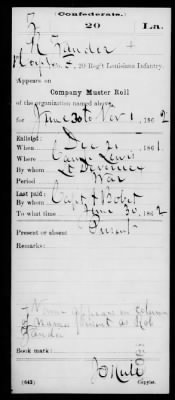 Confederate.
20 La.
Co. 5, 20 Reg't Louisiana Infantry.
Appears on
Company Muster Roll
of the organization named above,
for June 30 to Nov 1, 1862
Enlisted:
When Dec 21, 1861.
Where Camp Lewis
By whom
Period War
Last paid:
By whom Capt
To what time June 30, 1862
Present or absent Present
Remarks:
Name appears in column
of Names present as Rob
Book mark:
(642) Copyist.